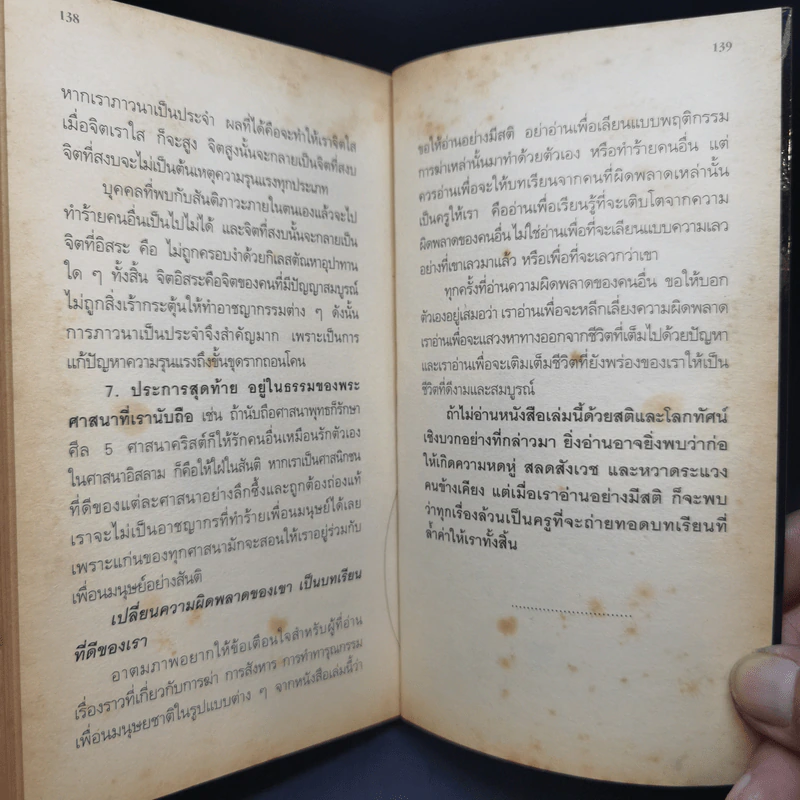 138
หากเราภาวนาเป็นประจำ ผลที่ได้คือจะทำให้เราจิตใส
เมื่อจิตเราใส ก็จะสูง จิตสูงนั้นจะกลายเป็นจิตที่สงบ
จิตที่สงบจะไม่เป็นต้นเหตุความรุนแรงทุกประเภท
บุคคลที่พบกับสันติภาวะภายในตนเองแล้วจะไป
ทำร้ายคนอื่นเป็นไปไม่ได้ และจิตที่สงบนั้นจะกลายเป็น
จิตที่อิสระ คือ ไม่ถูกครอบงำด้วยกิเลสตัณหาอุปาทาน
ใด ๆ ทั้งสิ้น จิตอิสระคือจิตของคนที่มีปัญญาสมบูรณ์
ไม่ถูกสิ่งเร้ากระตุ้นให้ทำอาชญากรรมต่าง ๆ ดังนั้น
การภาวนาเป็นประจำจึงสำคัญมาก เพราะเป็นการ
แก้ปัญหาความรุนแรงถึงขั้นขุดรากถอนโคน
7. ประการสุดท้าย อยู่ในธรรมของพระ
ศาสนาที่เรานับถือ เช่น ถ้านับถือศาสนาพุทธก็รักษา
ศีล 5 ศาสนาคริสต์ก็ให้รักคนอื่นเหมือนรักตัวเอง
ในศาสนาอิสลาม ก็คือให้ใฝ่ในสันติ หากเราเป็นศาสนิกชน
ที่ดีของแต่ละศาสนาอย่างลึกซึ้งและถูกต้องถ่องแท้
เราจะไม่เป็นอาชญากรที่ทำร้ายเพื่อนมนุษย์ได้เลย
เพราะแก่นของทุกศาสนามักจะสอนให้เราอยู่ร่วมกับ
เพื่อนมนุษย์อย่างสันติ
เปลี่ยนความผิดพลาดของเขา เป็นบทเรียน
ที่ดีของเรา
อาตมภาพอยากให้ข้อเตือนใจสำหรับผู้ที่อ่าน
เรื่องราวที่เกี่ยวกับการฆ่า การสังหาร การทำทารุณกรรม
เพื่อนมนุษยชาติในรูปแบบต่าง ๆ จากหนังสือเล่มนี้ว่า
139
ขอให้อ่านอย่างมีสติ อย่าอ่านเพื่อเลียนแบบพฤติกรรม
การฆ่าเหล่านั้นมาทำด้วยตัวเอง หรือทำร้ายคนอื่น แต่
ควรอ่านเพื่อจะให้บทเรียนจากคนที่ผิดพลาดเหล่านั้น
เป็นครูให้เรา คืออ่านเพื่อเรียนรู้ที่จะเติบโตจากความ
ผิดพลาดของคนอื่น ไม่ใช่อ่านเพื่อที่จะเลียนแบบความเลว
อย่างที่เขาเลวมาแล้ว หรือเพื่อที่จะเลวกว่าเขา
ทุกครั้งที่อ่านความผิดพลาดของคนอื่น ขอให้บอก
ตัวเองอยู่เสมอว่า เราอ่านเพื่อจะหลีกเลี่ยงความผิดพลาด
เราอ่านเพื่อจะแสวงหาทางออกจากชีวิตที่เต็มไปด้วยปัญหา
และเราอ่านเพื่อจะเติมเต็มชีวิตที่ยังพร่องของเราให้เป็น
ชีวิตที่ดีงามและสมบูรณ์
ถ้าไม่อ่านหนังสือเล่มนี้ด้วยสติและโลกทัศน์
เชิงบวกอย่างที่กล่าวมา ยิ่งอ่านอาจยิ่งพบว่าก่อ
ให้เกิดความหดหู่ สลดสังเวช และหวาดระแวง
คนข้างเคียง แต่เมื่อเราอ่านอย่างมีสติ ก็จะพบ
ว่าทุกเรื่องล้วนเป็นครูที่จะถ่ายทอดบทเรียนที่
ล้ำค่าให้เราทั้งสิ้น